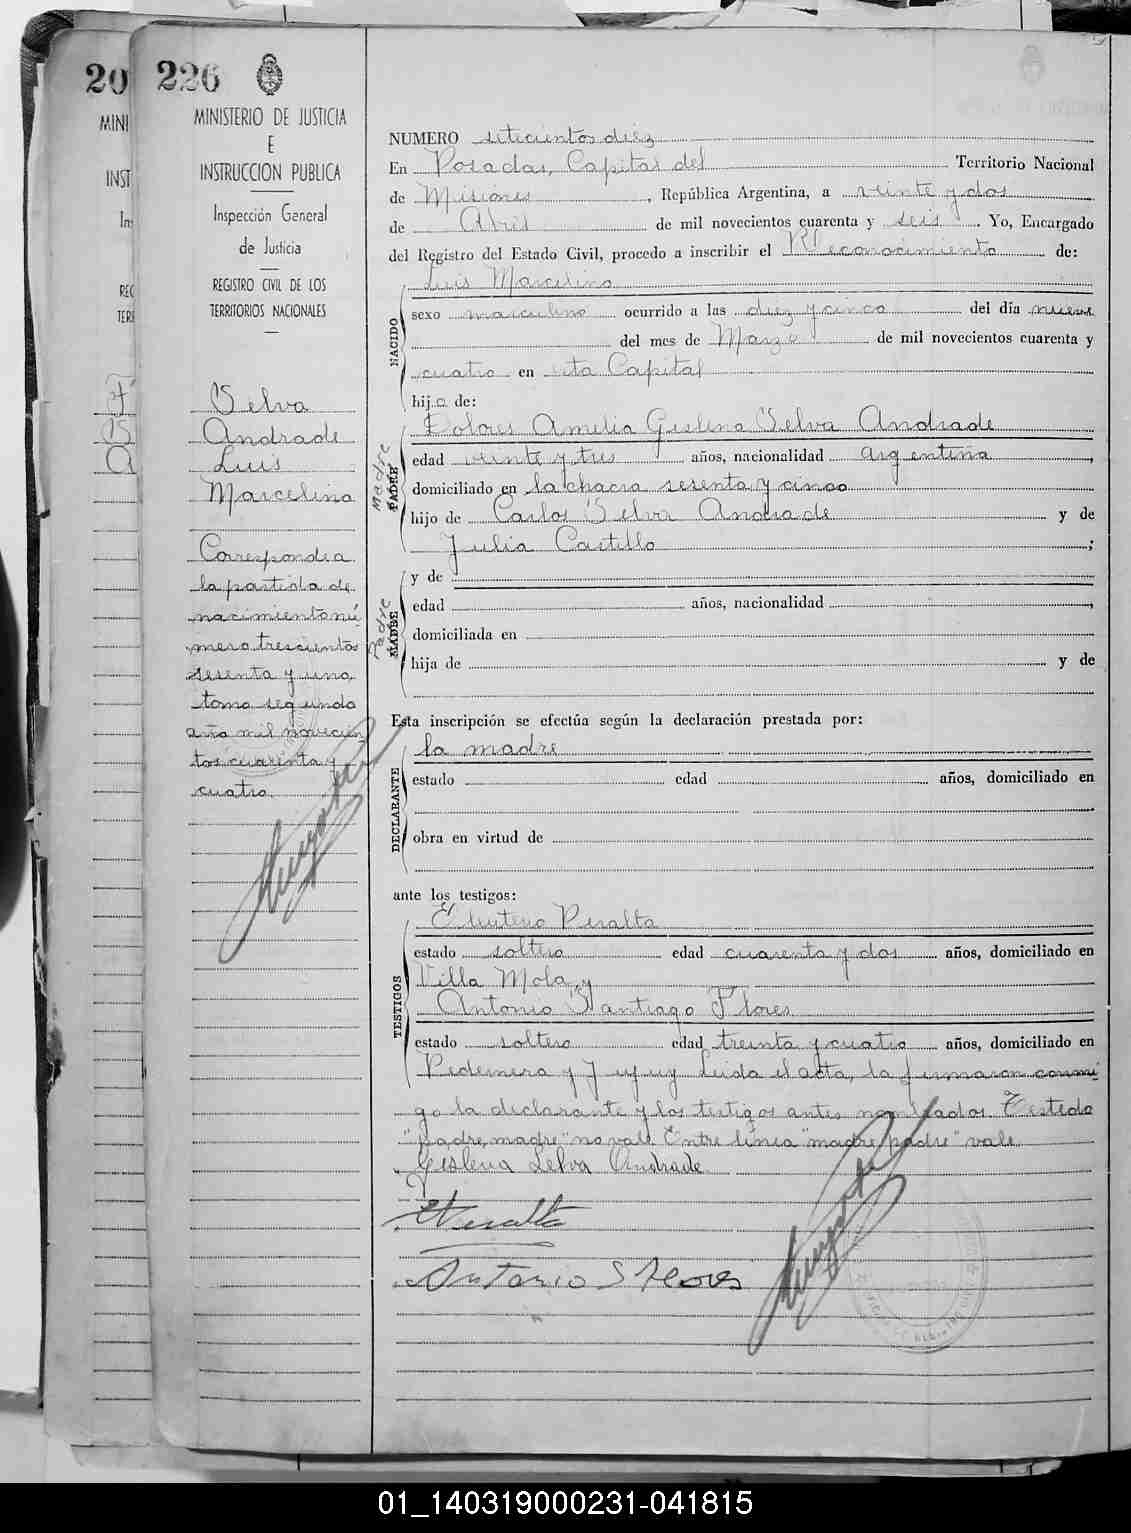 20
MINI
INST
In
REG
TERR
226
MINISTERIO DE JUSTICIA
E
INSTRUCCION PUBLICA
Inspección General
de Justicia
REGISTRO CIVIL DE LOS
TERRITORIOS NACIONALES
Selva
Andrade
Luis
Marcelino
Corresponde a
la partida de
nacimiento nú
mero trescientos
sesenta y uno,
tomo segundo
año mil novecien
tos cuarenta y
cuatro.
NUMERO setecientos diez
En Posadas, Capital del Territorio Nacional
de Misiones, República Argentina, a veinte y dos
de Abril de mil novecientos cuarenta y seis. Yo, Encargado
del Registro del Estado Civil, procedo a inscribir el Reconocimiento de:
Luis Marcelino
NACIDO
sexo masculino ocurrido a las diez y cinco del día nueve
del mes de Marzo de mil novecientos cuarenta y
cuatro en esta Capital
hijo de:
Dolores Amelia Gislena Selva Andrade
Madre
PADRE
edad veinte y tres años, nacionalidad argentina,
domiciliado en la chacra sesenta y cinco
hijo de Carlos Selva Andrade y de
Julia Castillo;
y de
Padre
MADRE
edad años, nacionalidad,
domiciliada en
hija de y de
Esta inscripción se efectúa según la declaración prestada por:
la madre
DECLARANTE
estado edad años, domiciliado en
obra en virtud de
ante los testigos:
Eleuterio Peralta
TESTIGOS
estado soltero edad cuarenta y dos años, domiciliado en
Villa Mola, y
Antonio Santiago Flores
estado soltero edad treinta y cuatro años, domiciliado en
Pedernera y Jujuy Leida el acta, la firmaron conmi-
go la declarante y los testigos antes nombrados. Testado
"padre, madre" no vale. Entre línea "madre, padre" vale.
Gislena Selva Andrade
EPeralta
Antonio S Flores
01_140319000231-041815